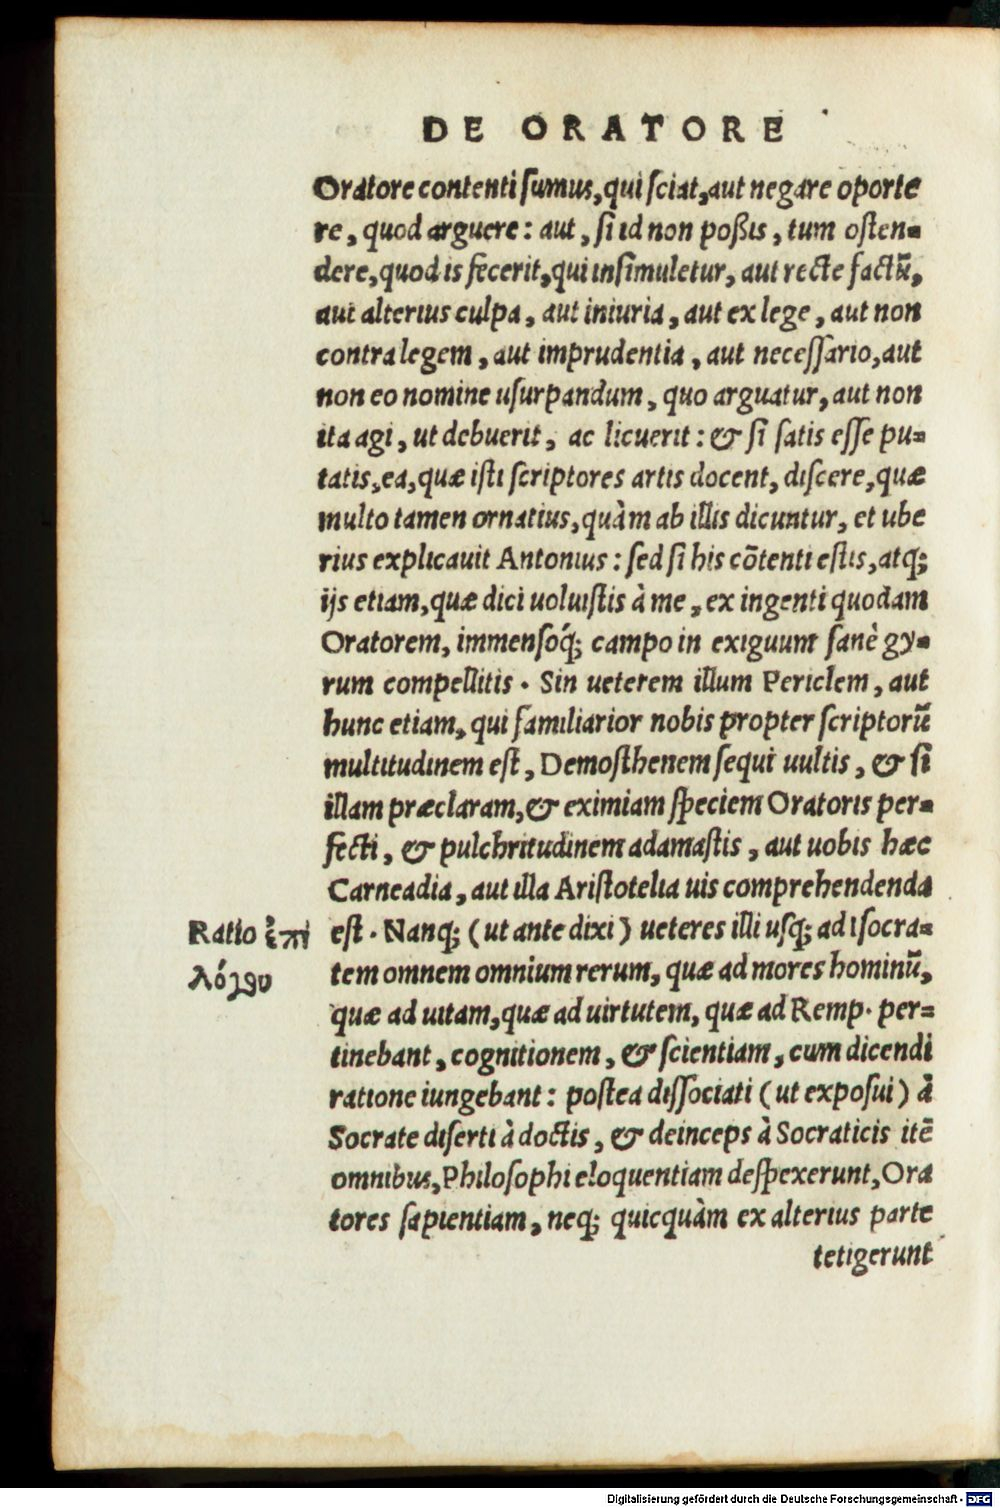 DE ORATORE
Oratore contenti sumus, qui sciat, aut negare oporte
re, quod arguere: aut, si id non poßis, tum osten-
dere, quod is fecerit, qui insimuletur, aut recte factū,
aut alterius culpa, aut iniuria, aut ex lege, aut non
contra legem, aut imprudentia, aut necessario, aut
non eo nomine usurpandum, quo arguatur, aut non
ita agi, ut debuerit, ac licuerit: & si satis esse pu-
tatis, ea, quæ isti scriptores artis docent, discere, quæ
multo tamen ornatius, quàm ab illis dicuntur, et ube
rius explicauit Antonius: sed si his cōtenti estis, atq;
ijs etiam, quæ dici uoluistis à me, ex ingenti quodam
Oratorem, immensóq; campo in exiguum sanè gy-
rum compellitis. Sin ueterem illum Periclem, aut
hunc etiam, qui familiarior nobis propter scriptorū
multitudinem est, Demosthenem sequi uultis, & si
illam præclaram, & eximiam speciem Oratoris per-
fecti, & pulchritudinem adamastis, aut uobis hæc
Carneadia, aut illa Aristotelia uis comprehendenda
Ratio ἐπι
λόγου
est. Nanq; (ut ante dixi) ueteres illi usq; ad Isocra-
tem omnem omnium rerum, quæ ad mores hominū,
quæ ad uitam, quæ ad uirtutem, quæ ad Remp. per-
tinebant, cognitionem, & scientiam, cum dicendi
ratione iungebant: postea dissociati (ut exposui) à
Socrate diserti à doctis, & deinceps à Socraticis itē
omnibus, Philosophi eloquentiam despexerunt, Ora
tores sapientiam, neq; quicquàm ex alterius parte
tetigerunt
Digitalisierung gefördert durch die Deutsche Forschungsgemeinschaft - DFG